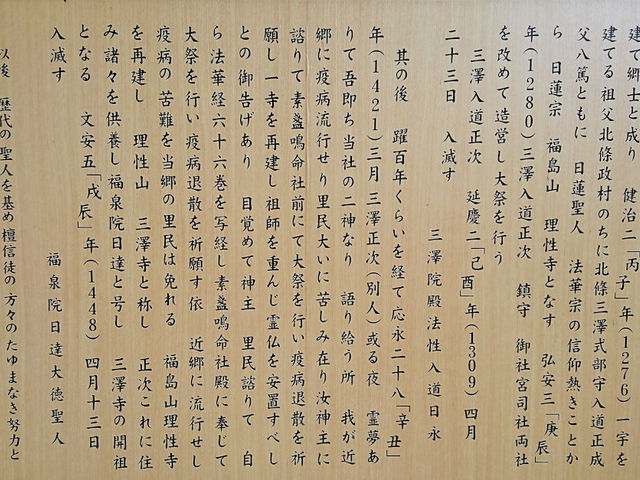 建て郷士と成り 健治二「丙子」年(1276)一宇を
建てる祖父北條政村のちに北條三澤式部守入道正成
父八篤ともに 日蓮聖人 法華宗の信仰熱きことか
ら 日蓮宗 福島山 理性寺となす 弘安三「庚辰」
年(1280)三澤入道正次 鎮守 御社宮司社両社
を改めて造営し大祭を行う
三澤入道正次 延慶二「己酉」年(1309)四月
二十三日 入滅す
三澤院殿法性入道日永
其の後 躍百年くらいを経て応永二十八「辛丑」
年(1421)三月三澤正次(別人)或る夜 霊夢あ
りて吾即ち当社の二神なり 語り給う所 我が近
郷に疫病流行せり里民大いに苦しみ在り汝神主に
諮りて素盞鳴命社前にて大祭を行い疫病退散を祈
願し一寺を再建し祖師を重んじ霊仏を安置すべし
との御告げあり 目覚めて神主 里民諮りて 自
ら法華経六十六巻を写経し素盞鳴命社殿に奉じて
大祭を行い疫病退散を祈願す依 近郷に流行せし
疫病の苦難を当郷の里民は免れる 福島山理性寺
を再建し 理性山 三澤寺と称し 正次これに住
み諸々を供養し福泉院日達と号し 三澤寺の開祖
となる 文安五「戊辰」年(1448)四月十三日
入滅す
福泉院日達大徳聖人
以後 歴代の聖人を基め檀信徒の方々のたゆまなき努力と